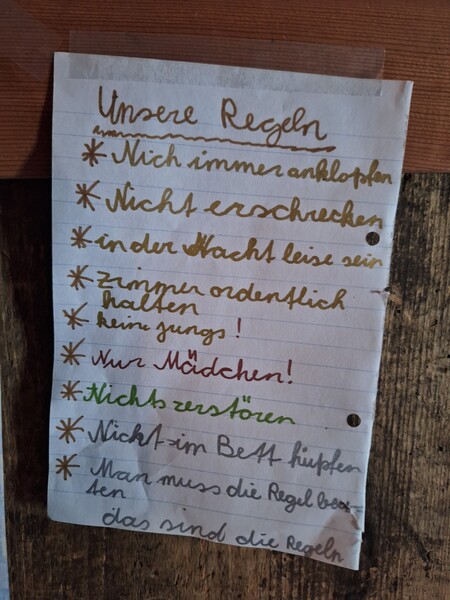 Unsere Regeln
* Nich immer anklopfen
* Nicht erschrecken
* in der Nacht leise sein
* zimmer ordentlich
halten
* keine jungs!
* Nur Mädchen!
* Nichts zerstören
* Nickt im Bett hüpfen
* Man muss die Regel
ten
das sind die Regeln